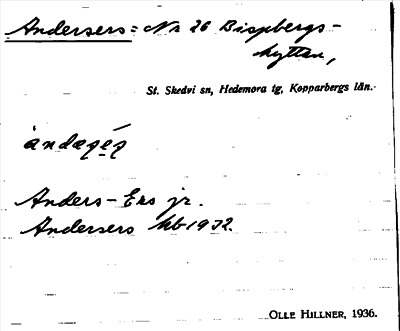 Andersers = Nr 26 Bispbergs-
hyttan,
St. Skedvi sn, Hedemora tg, Kopparbergs län.
Anders-Ers jr.
Andersers hb 1932.
OLLE HILLNER, 1936.